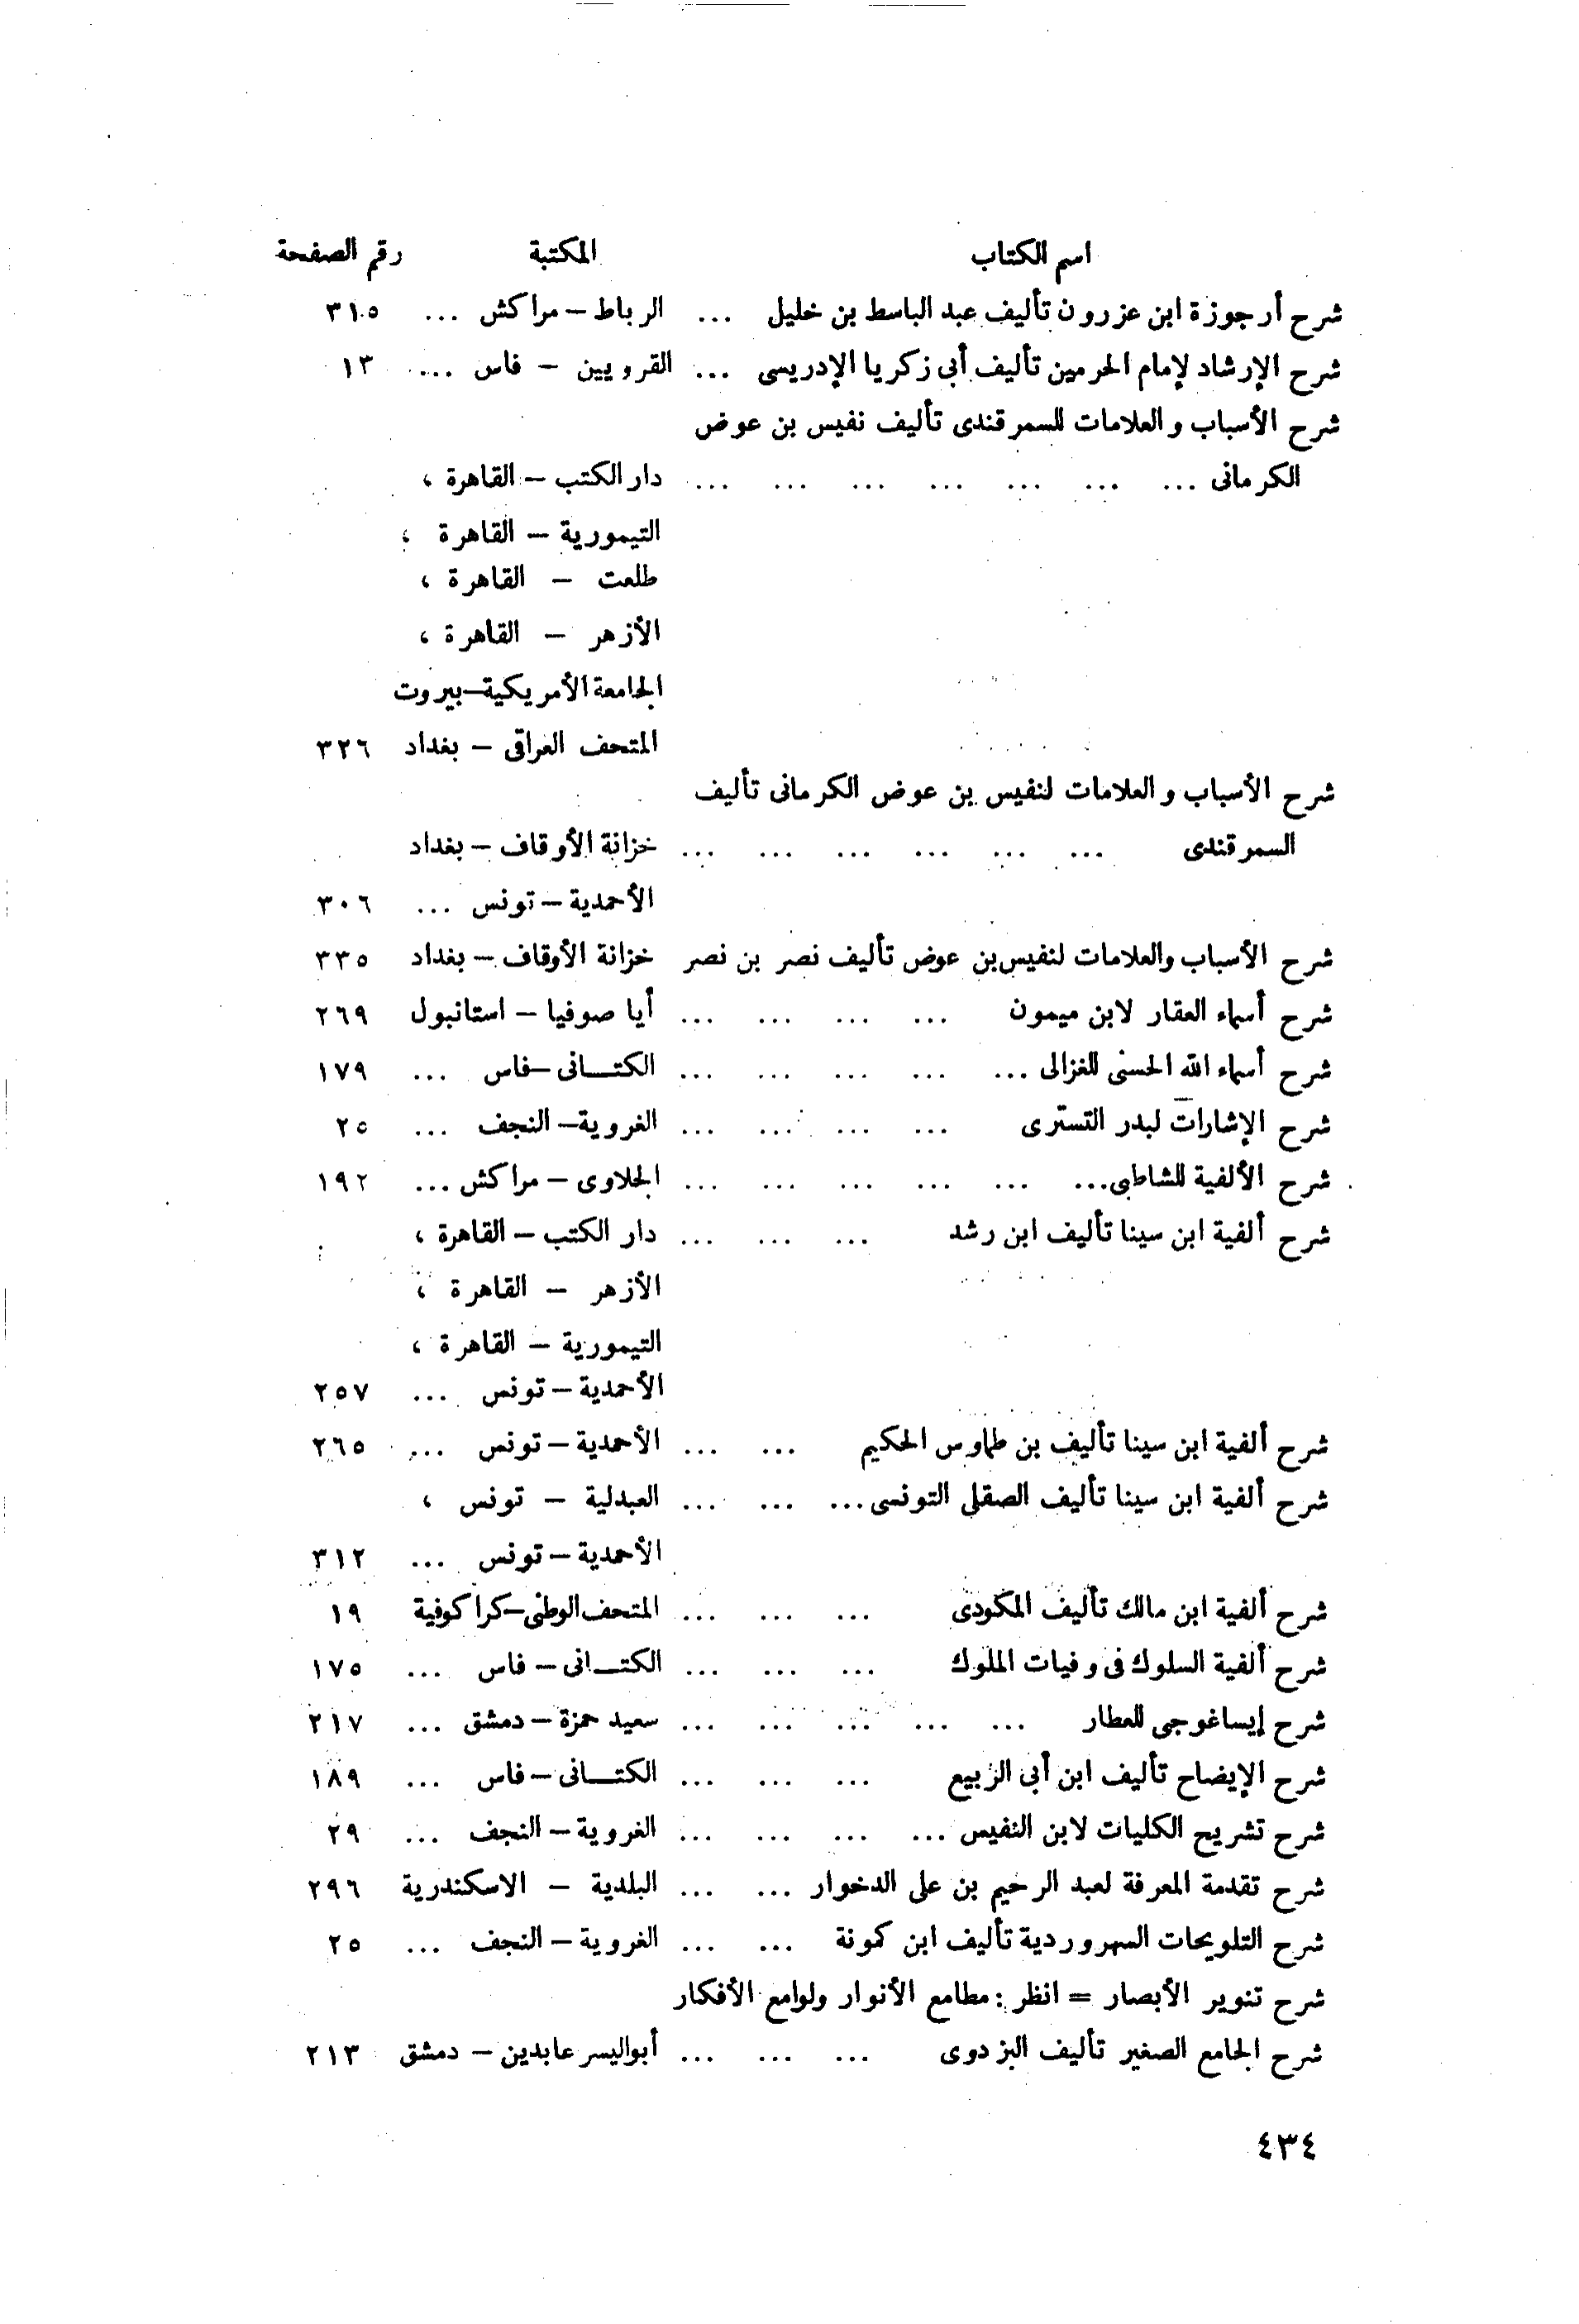 اسم الكتاب المكتبة رقم الصفحة
شرح أرجوزة ابن عزرون تأليف عبد الباسط بن خليل ... الرباط – مراكش ... ٣١٥
شرح الإرشاد لإمام الحرمين تأليف أبى زكريا الإدريسى ... القرويين – فاس ... ١٣
شرح الأسباب والعلامات للسمرقندى تأليف نفيس بن عوض
الكرمانى ... ... ... ... ... ... ... دار الكتب – القاهرة ،
التيمورية – القاهرة ،
طلعت – القاهرة ،
الأزهر – القاهرة ،
الجامعة الأمريكية – بيروت
المتحف العراقى – بغداد ٣٢٦
شرح الأسباب والعلامات لنفيس بن عوض الكرمانى تأليف
السمرقندى ... ... ... ... ... ... خزانة الأوقاف – بغداد
الأحمدية – تونس ... ٣٠٦
شرح الأسباب والعلامات لنفيس بن عوض تأليف نصر بن نصر خزانة الأوقاف – بغداد ٣٣٥
شرح أسماء العقار لابن ميمون ... ... ... ... أيا صوفيا – استانبول ٢٦٩
شرح أسماء الله الحسنى للغزالى ... ... ... ... ... الكتانى – فاس ... ١٧٩
شرح الإشارات لبدر التسترى ... ... ... ... الغروية – النجف ... ٢٥
شرح الألفية للشاطبى ... ... ... ... ... ... الجلاوى – مراكش ... ١٩٢
شرح ألفية ابن سينا تأليف ابن رشد ... ... ... دار الكتب – القاهرة ،
الأزهر – القاهرة ،
التيمورية – القاهرة ،
الأحمدية – تونس ... ٢٥٧
شرح ألفية ابن سينا تأليف بن طماوس الحكيم ... ... الأحمدية – تونس ... ٢٦٥
شرح ألفية ابن سينا تأليف الصقلى التونسى ... ... ... العبدلية – تونس ،
الأحمدية – تونس ... ٣١٢
شرح ألفية ابن مالك تأليف المكودى ... ... ... المتحف الوطنى – كراكوفية ١٩
شرح ألفية السلوك فى وفيات الملوك ... ... ... الكتانى – فاس ... ١٧٥
شرح إيساغوجى للعطار ... ... ... ... ... سعيد حمزة – دمشق ... ٢١٧
شرح الإيضاح تأليف ابن أبى الربيع ... ... ... الكتانى – فاس ... ١٨٩
شرح تشريح الكليات لابن النفيس ... ... ... ... الغروية – النجف ... ٢٩
شرح تقدمة المعرفة لعبد الرحيم بن على الدخوار ... ... البلدية – الاسكندرية ٢٩٦
شرح التلويحات السهروردية تأليف ابن كمونة ... ... الغروية – النجف ... ٢٥
شرح تنوير الأبصار = انظر : مطامع الأنوار ولوامع الأفكار
شرح الجامع الصغير تأليف البزدوى ... ... ... أبو اليسر عابدين – دمشق ٢١٣
٤٣٤